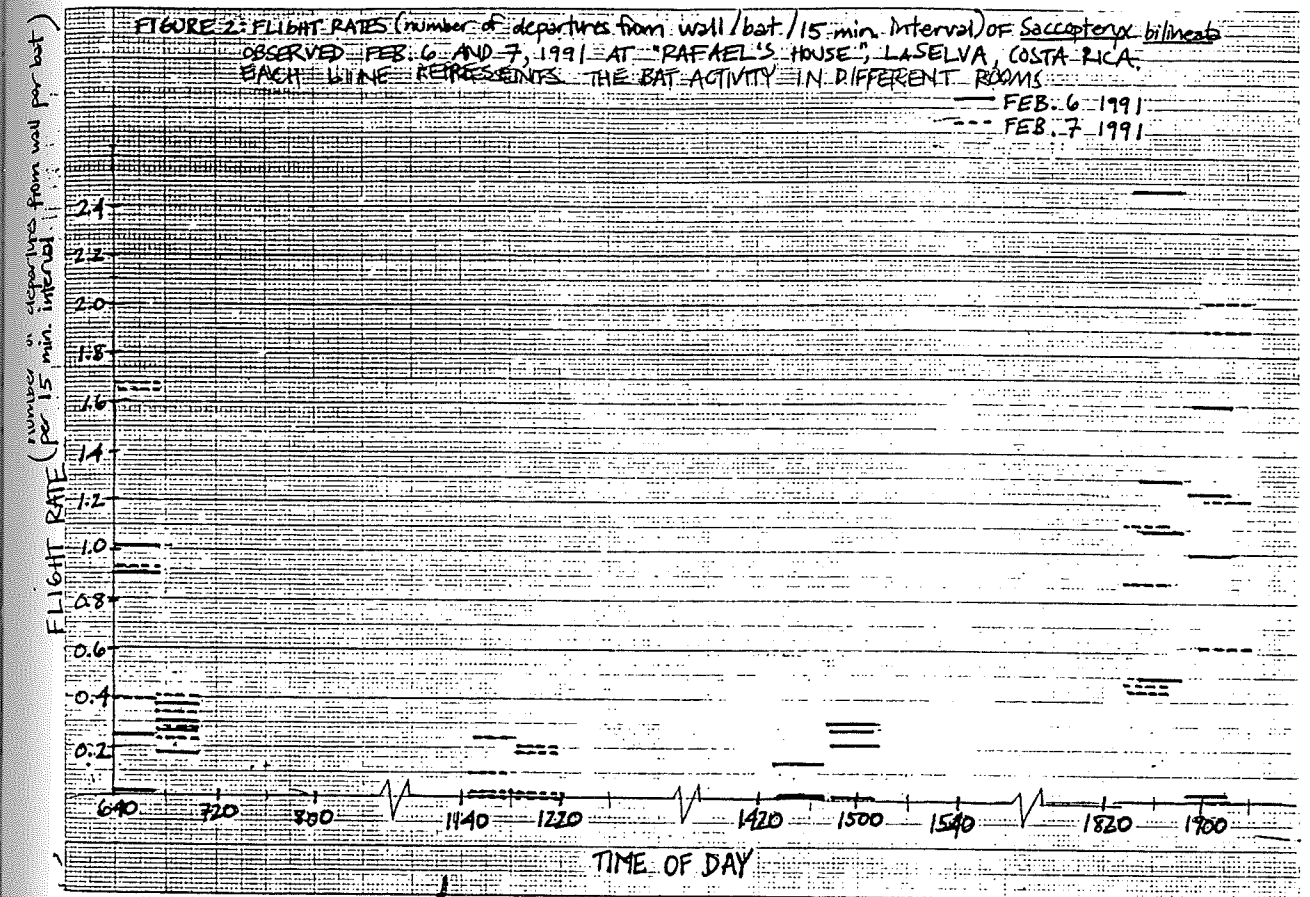 FIGURE 2: FLIGHT RATES (number of departures from wall/bat/15 min. interval) OF Saccopteryx bilineata
OBSERVED FEB. 6 AND 7, 1991 AT "RAFAEL'S HOUSE", LASELVA, COSTA RICA.
EACH LINE REPRESENTS THE BAT ACTIVITY IN DIFFERENT ROOMS
FEB. 6 1991
FEB. 7 1991
FLIGHT RATE (number of departures from wall per bat
per 15 min. interval)
2.4
2.2
2.0
1.8
1.6
1.4
1.2
1.0
0.8
0.6
0.4
0.2
640 720 800 1140 1220 1420 1500 1540 1820 1900
TIME OF DAY